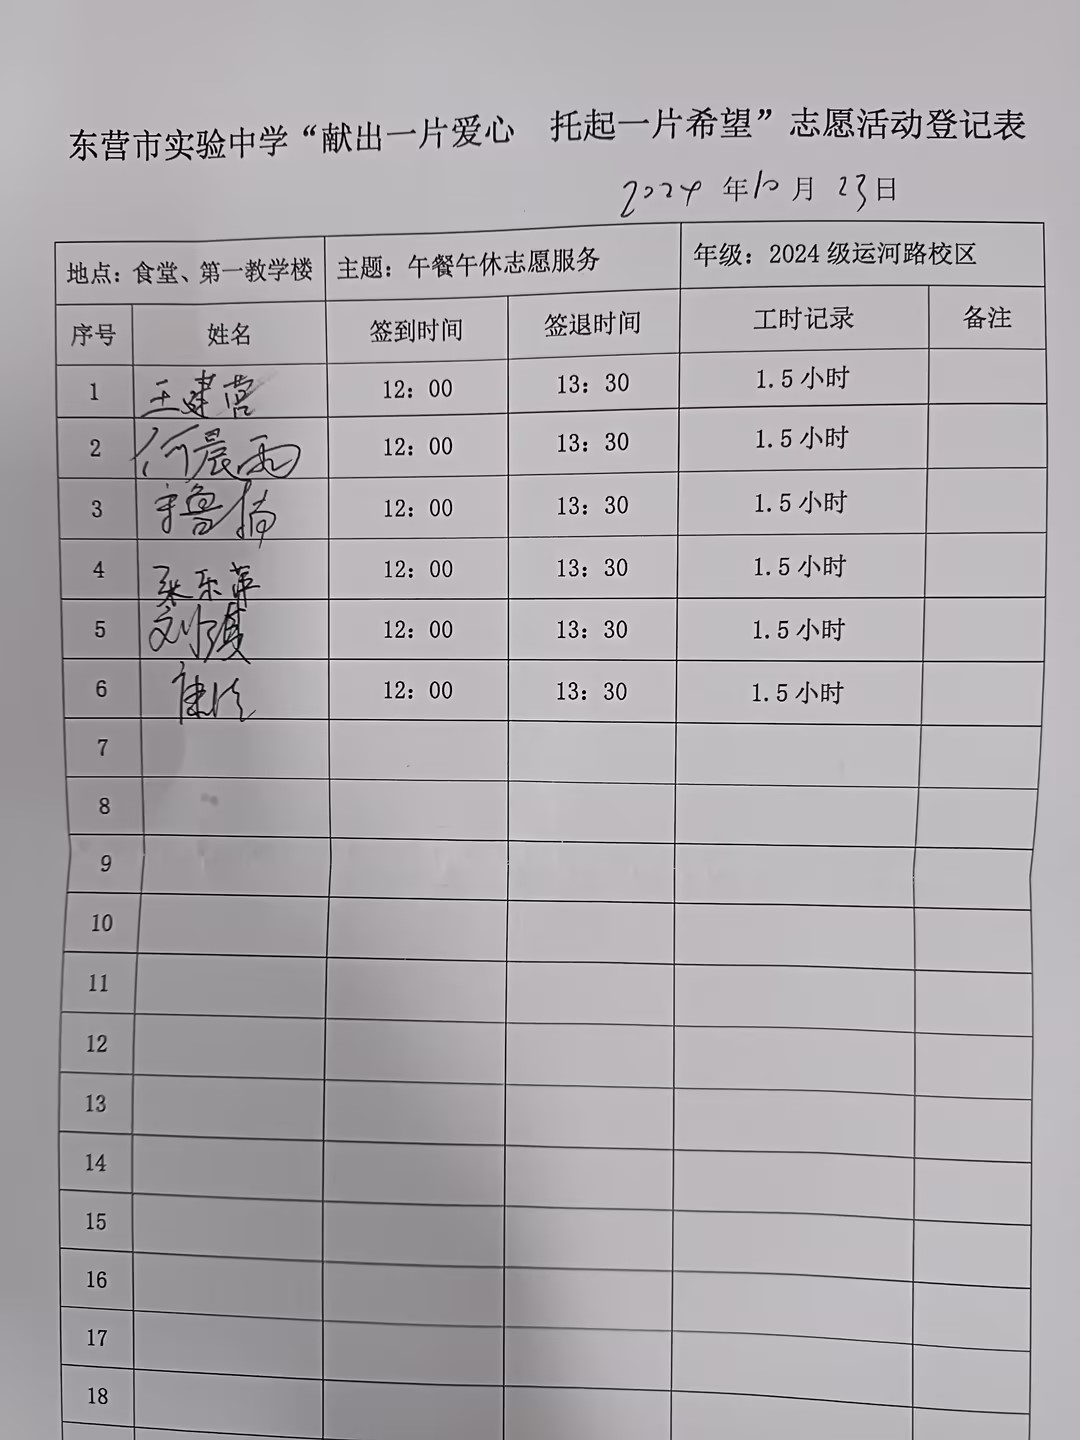 东营市实验中学“献出一片爱心 托起一片希望”志愿活动登记表
2024 年 10 月 23 日
地点：食堂、第一教学楼 主题：午餐午休志愿服务 年级：2024 级运河路校区
序号 姓名 签到时间 签退时间 工时记录 备注
1 王建营 12：00 13：30 1.5 小时
2 何晨雨 12：00 13：30 1.5 小时
3 12：00 13：30 1.5 小时
4 张乐英 12：00 13：30 1.5 小时
5 12：00 13：30 1.5 小时
6 12：00 13：30 1.5 小时
7
8
9
10
11
12
13
14
15
16
17
18